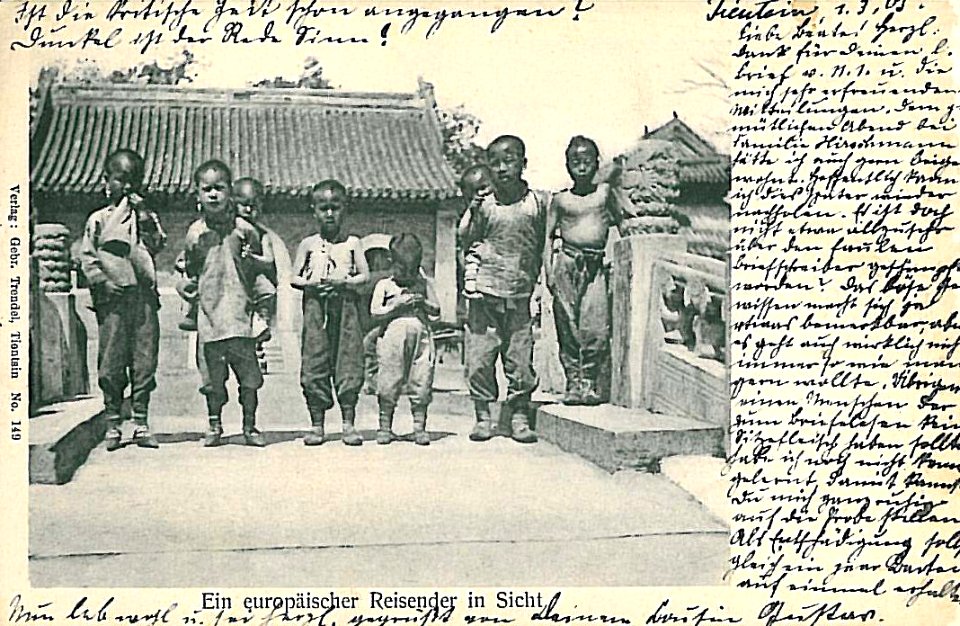 Ist die kritische Zeit schon angegangen?
Dunkel ist der Rede Sinn!
Tientsin 1.3.05.
Liebe Beates! Herzl.
dank für deinen l.
Brief v. 11.1. u. die
mich sehr erfreuenden
Mitteilungen. Dem ge
mütlichen Abend bei
Familie
hätte ich auch gern beige
wohnt. Hoffentlich kann
ich das später wieder
nachholen. Es ist doch
nicht etwa allzusehr
über den faulen
Briefschreiber geschimpft
worden? Das böse Ge
wissen macht sich ja
etwas bemerkbar, aber
es geht auch wirklich nicht
immer so wie man
gern wollte. Übrigens
einen Menschen der
zum Brieflesen kein
Sitzfleisch haben sollte
habe ich noch nicht kennen
gelernt, damit kannst
Du mich ganz ruhig
auf die Probe stellen
Als Entschädigung sollst
gleich ein paar Karten
auf einmal erhalten
Verlag: Gebr. Trendel, Tientsin No. 149
Ein europäischer Reisender in Sicht.
Nun leb wohl u. sei herzl. gegrüßt von Deinem Cousin Gustav.